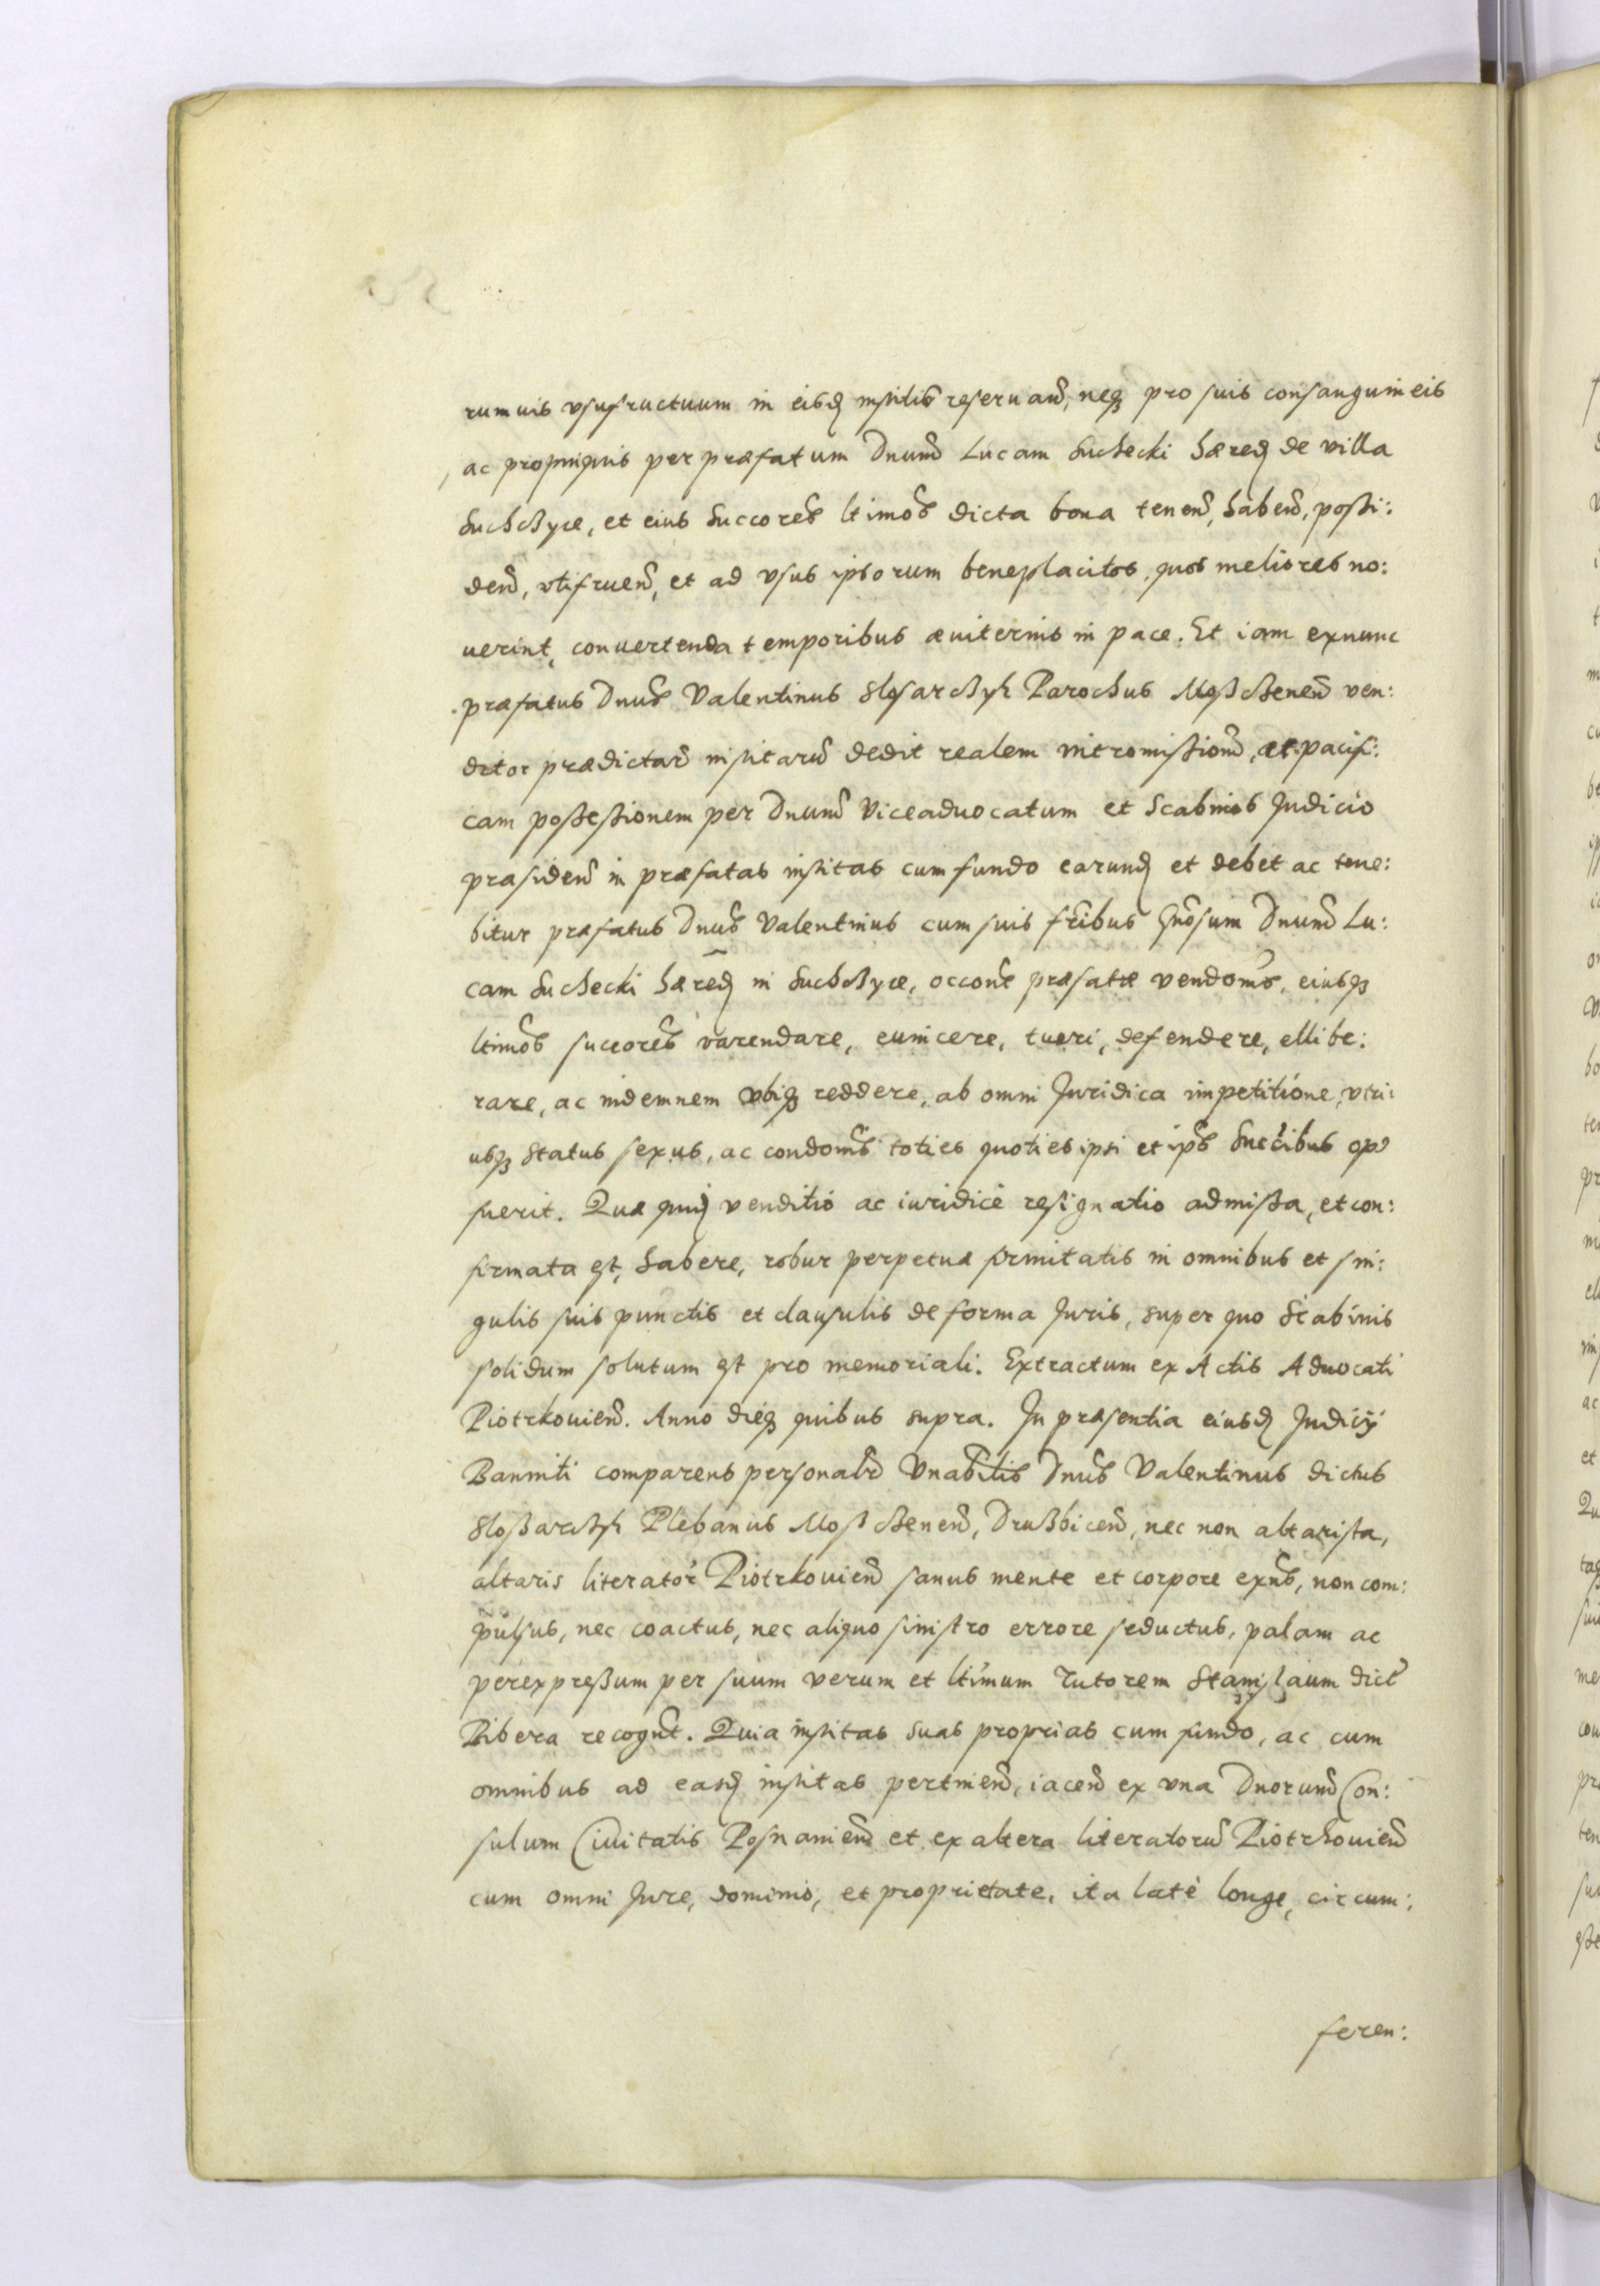 rum uis vsufructuum in eisd institis reseruand, neq pro suis consanguineis
ac propinquis per præfatum Dnum Lucam Suchecki hæred de villa
Suchczyce, et eius Succores ltimos dicta bona tenend, habend, possi:
dend, vtifruend, et ad vsus ipsorum beneplacitos, quos meliores no:
uerint, conuertenda temporibus æuiternis in pace. Et iam exnunc
præfatus Dnus Valentinus Slosarczyk Parochus Moszczenen ven:
ditor prædictar institaru dedit realem intromission, et pacifi:
cam possessionem per Dnum Viceaduocatum et Scabinos Judicio
præsiden in præfatas institas cum fundo earund et debet ac tene:
bitur præfatus Dnus Valentinus cum suis fribus Gnosum Dnum Lu:
cam Suchecki hæred in Suchczyce, occone præfatæ vendonis, eiusq
ltimos succores varendare, euincere, tueri, defendere, ellibe:
rare, ac indemnem vbiq reddere, ab omni Juridica impetitione, vtri
usq status sexus, ac condonis toties quoties ipsi et ips Succibus op
fuerit. Quæ quid venditio ac iuridicè resignatio admissa, et con:
firmata est, habere, robur perpetuæ firmitatis in omnibus et sin:
gulis suis punctis et clausulis de forma Juris, super quo Scabinis
solidum solutum est pro memoriali. Extractum ex Actis Aduocati
Piotrkouien. Anno dieq quibus supra. In præsentia eiusd Judicij
Banniti comparens personalr Vnabilis Dnus Valentinus dictus
Slossarczyk Plebanus Moszczenen, Druszbicen, nec non altarista,
altaris literator Piotrkouien sanus mente et corpore exns, non com:
pulsus, nec coactus, nec aliquo sinistro errore seductus, palam ac
per expressum per suum verum et ltimum Tutorem Stanislaum dict
Ribera recognt. Quia institas suas proprias cum fundo, ac cum
omnibus ad easd institas pertinen, iacen ex vna Dnorum Con:
sulum Ciuitatis Posnanien et ex altera literatoru Piotrkouien
cum omni Jure, dominio, et proprietate, ita latè longe, circum:
feren: